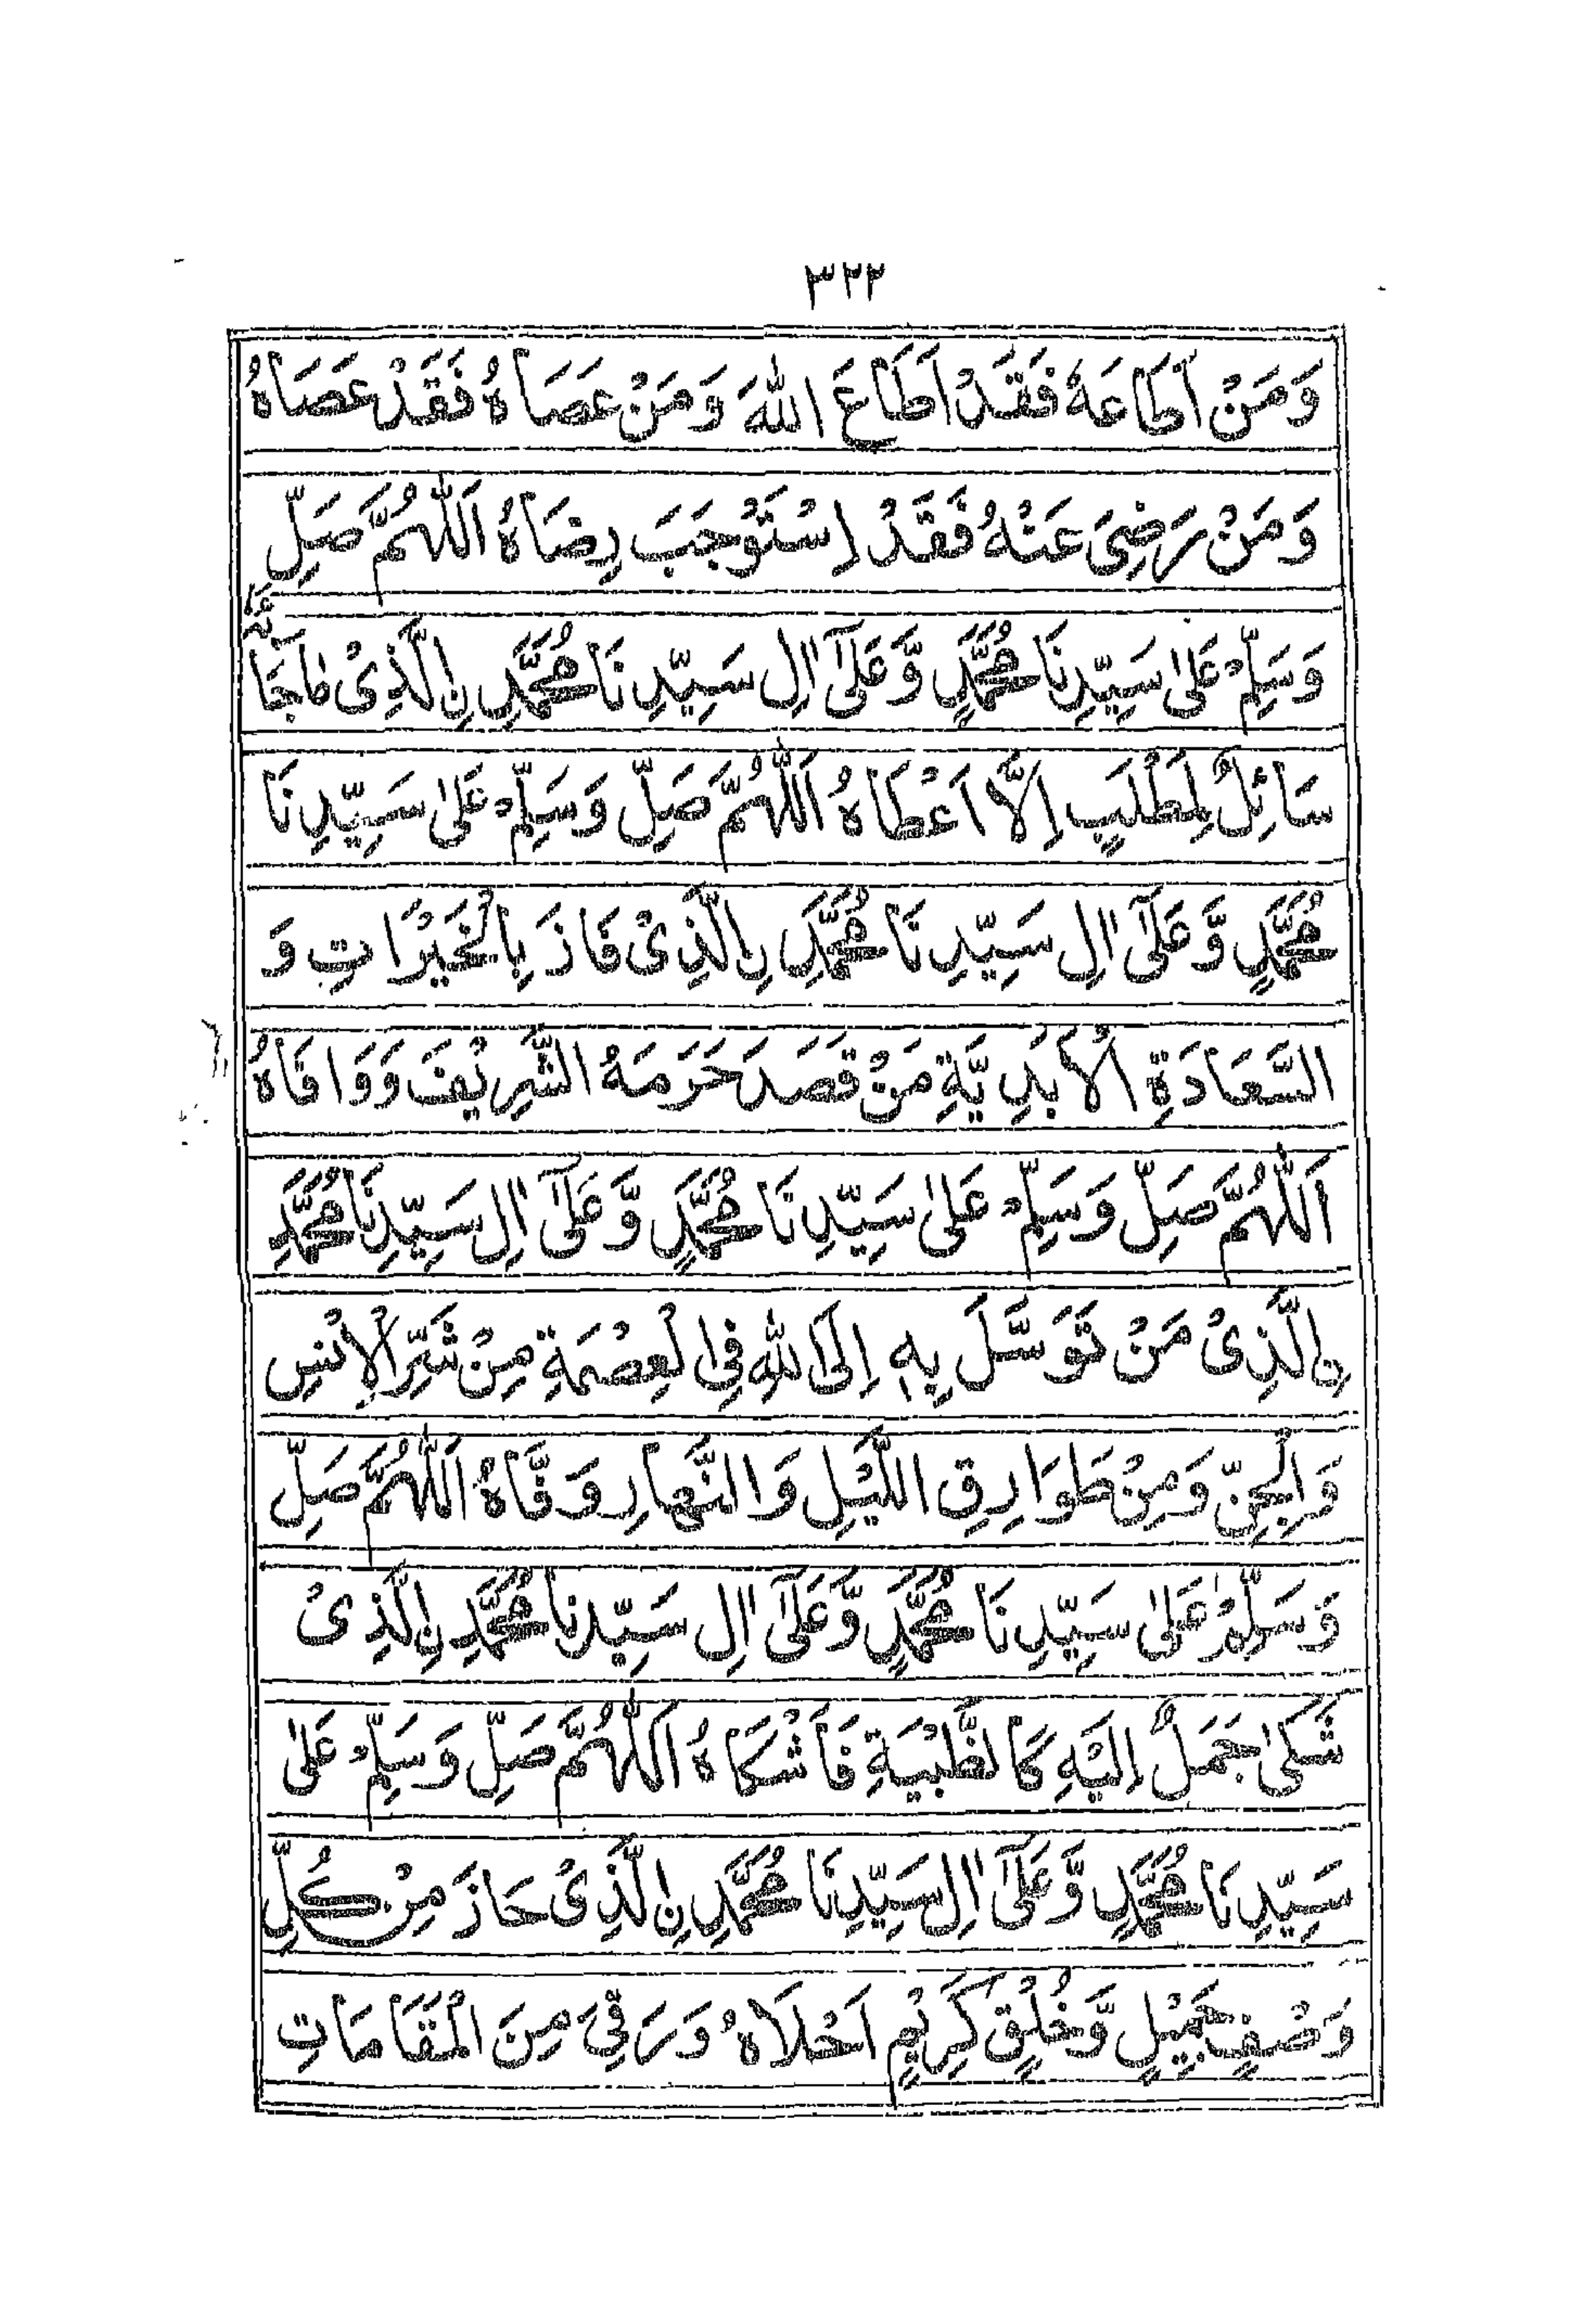 ۳۲۲
وَمَنْ اَطَاعَهٗ فَقَدْ اَطَاعَ اللهَ وَمَنْ عَصَاهُ فَقَدْ عَصَاهُ
وَمَنْ رَضِیَ عَنْهُ فَقَدْ اِسْتَوْجَبَ رِضَاهُ اَللّٰهُمَّ صَلِّ
وَسَلِّمْ عَلٰی سَیِّدِنَا مُحَمَّدٍ وَّعَلٰٓی اٰلِ سَیِّدِنَا مُحَمَّدِ نِ الَّذِیْ مَا جَآءَهٗ
سَائِلٌ لِمَطْلَبٍ اِلَّا اَعْطَاهُ اَللّٰهُمَّ صَلِّ وَسَلِّمْ عَلٰی سَیِّدِنَا
مُحَمَّدٍ وَّعَلٰٓی اٰلِ سَیِّدِنَا مُحَمَّدِ نِ الَّذِیْ فَازَ بِالْخَیْرَاتِ وَ
السَّعَادَةِ الْاَبَدِیَّةِ مَنْ قَصَدَ حَرَمَهُ الشَّرِیْفَ وَوَافَاهُ
اَللّٰهُمَّ صَلِّ وَسَلِّمْ عَلٰی سَیِّدِنَا مُحَمَّدٍ وَّعَلٰٓی اٰلِ سَیِّدِنَا مُحَمَّدِ
نِ الَّذِیْ مَنْ تَوَسَّلَ بِهٖ اِلَی اللهِ فِی الْعِصْمَةِ مِنْ شَرِّ الْاِنْسِ
وَالْجِنِّ وَمِنْ طَوَارِقِ اللَّیْلِ وَالنَّهَارِ وَقَّاهُ اَللّٰهُمَّ صَلِّ
وَسَلِّمْ عَلٰی سَیِّدِنَا مُحَمَّدٍ وَّعَلٰٓی اٰلِ سَیِّدِنَا مُحَمَّدِ نِ الَّذِیْ
شَکٰی جَمَلٌ اِلَیْهِ کَالظَّبْیَةِ فَاَشْکَاهُ اَللّٰهُمَّ صَلِّ وَسَلِّمْ عَلٰی
سَیِّدِنَا مُحَمَّدٍ وَّعَلٰٓی اٰلِ سَیِّدِنَا مُحَمَّدِ نِ الَّذِیْ حَازَ مِنْ کُلِّ
وَصْفٍ جَمِیْلٍ وَّخُلُقٍ کَرِیْمٍ اَحْلَاهُ وَرَقِیَ مِنَ الْمَقَامَاتِ